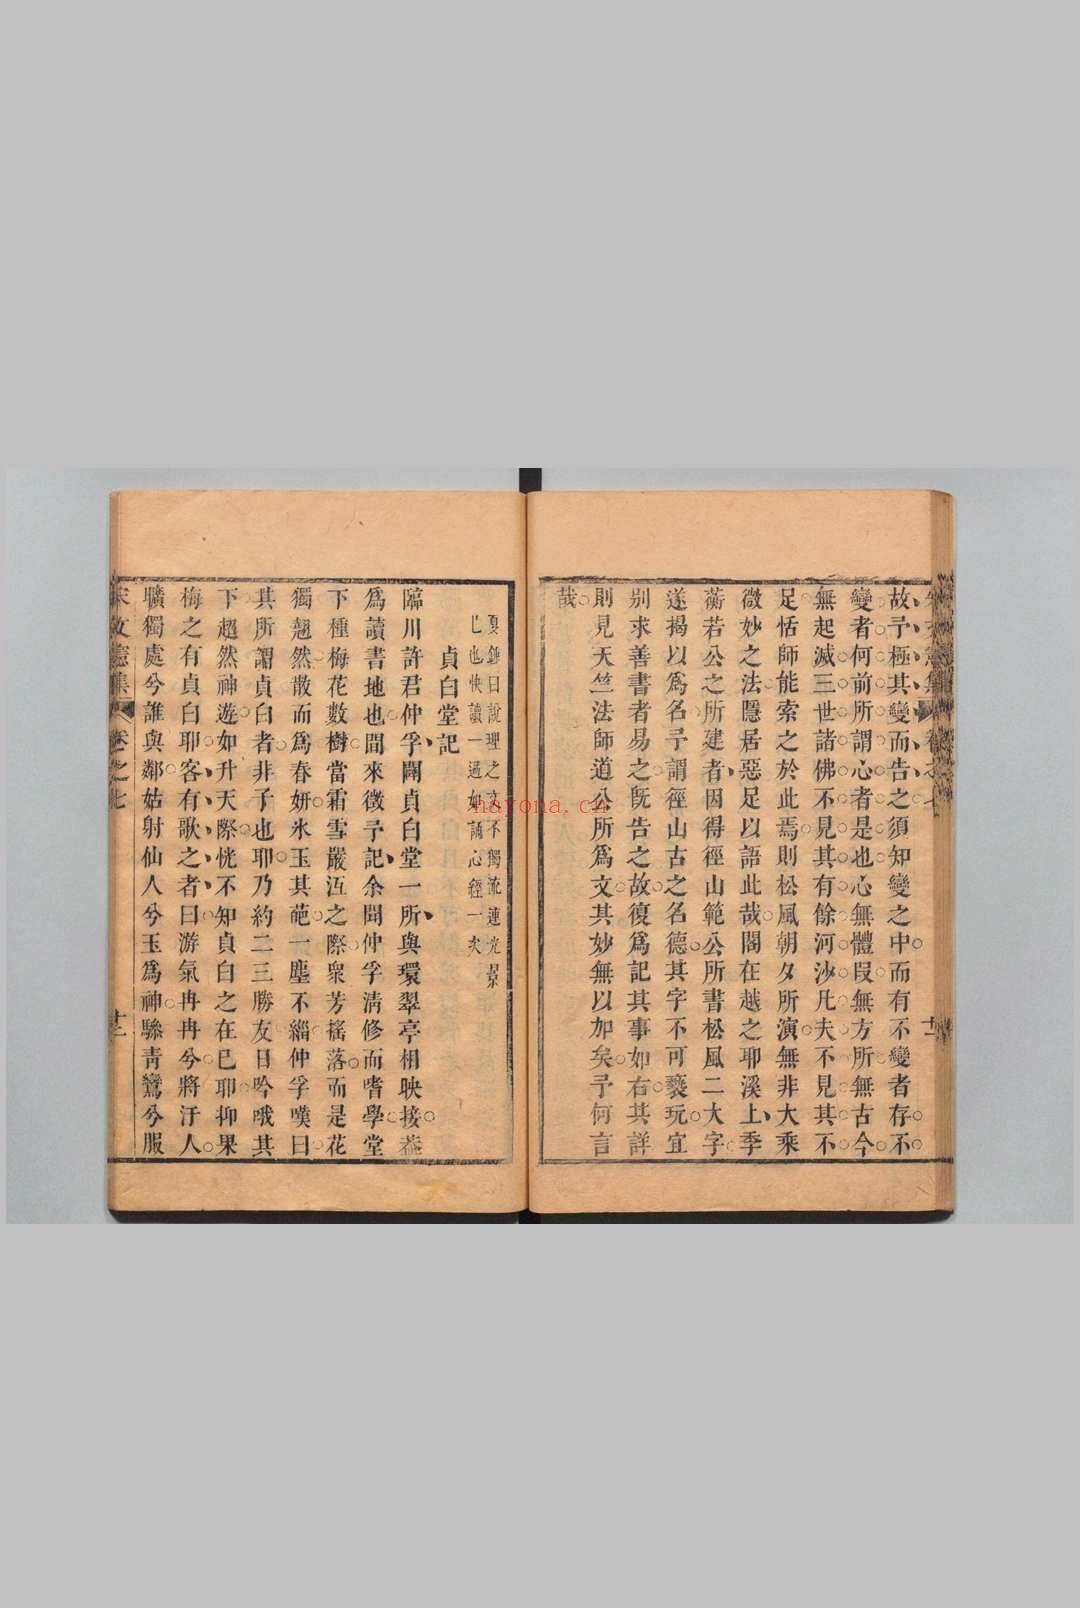 故予極其變而告之須知變之中而有不變者存不
變者何前所謂心者是也心無體段無方所無古今
無起滅三世諸佛不見其有餘河沙凡夫不見其不
足恬師能索之於此焉則松風朝夕所演無非大乘
微妙之法隱居惡足以語此哉閣在越之耶溪上季
蘅若公之所建者因得徑山範公所書松風二大字
遂揭以爲名予謂徑山古之名德其字不可褻玩宜
别求善書者易之旣告之故復爲記其事如右其詳
則見天竺法師道公所爲文其妙無以加矣予何言
哉
夏錐曰說理之文不獨流連光景
已也快讀一過如誦心經一夾
貞白堂記
臨川許君仲孚闢貞白堂一所與環翠亭相映接葢
爲讀書地也間來徵予記余聞仲孚淸修而嗜學堂
下種梅花數樹當霜雪嚴沍之際衆芳搖落而是花
獨翹然散而爲春妍氷玉其葩一塵不緇仲孚嘆曰
其所謂貞白者非子也耶乃約二三勝友日吟哦其
下超然神遊如升天際恍不知貞白之在已耶抑果
梅之有貞白耶客有歌之者曰游氣冉冉兮將汙人
曠獨處兮誰與鄰姑射仙人兮玉爲神驂靑鸞兮服
宋文憲集
卷之七
十二
hayona.cn